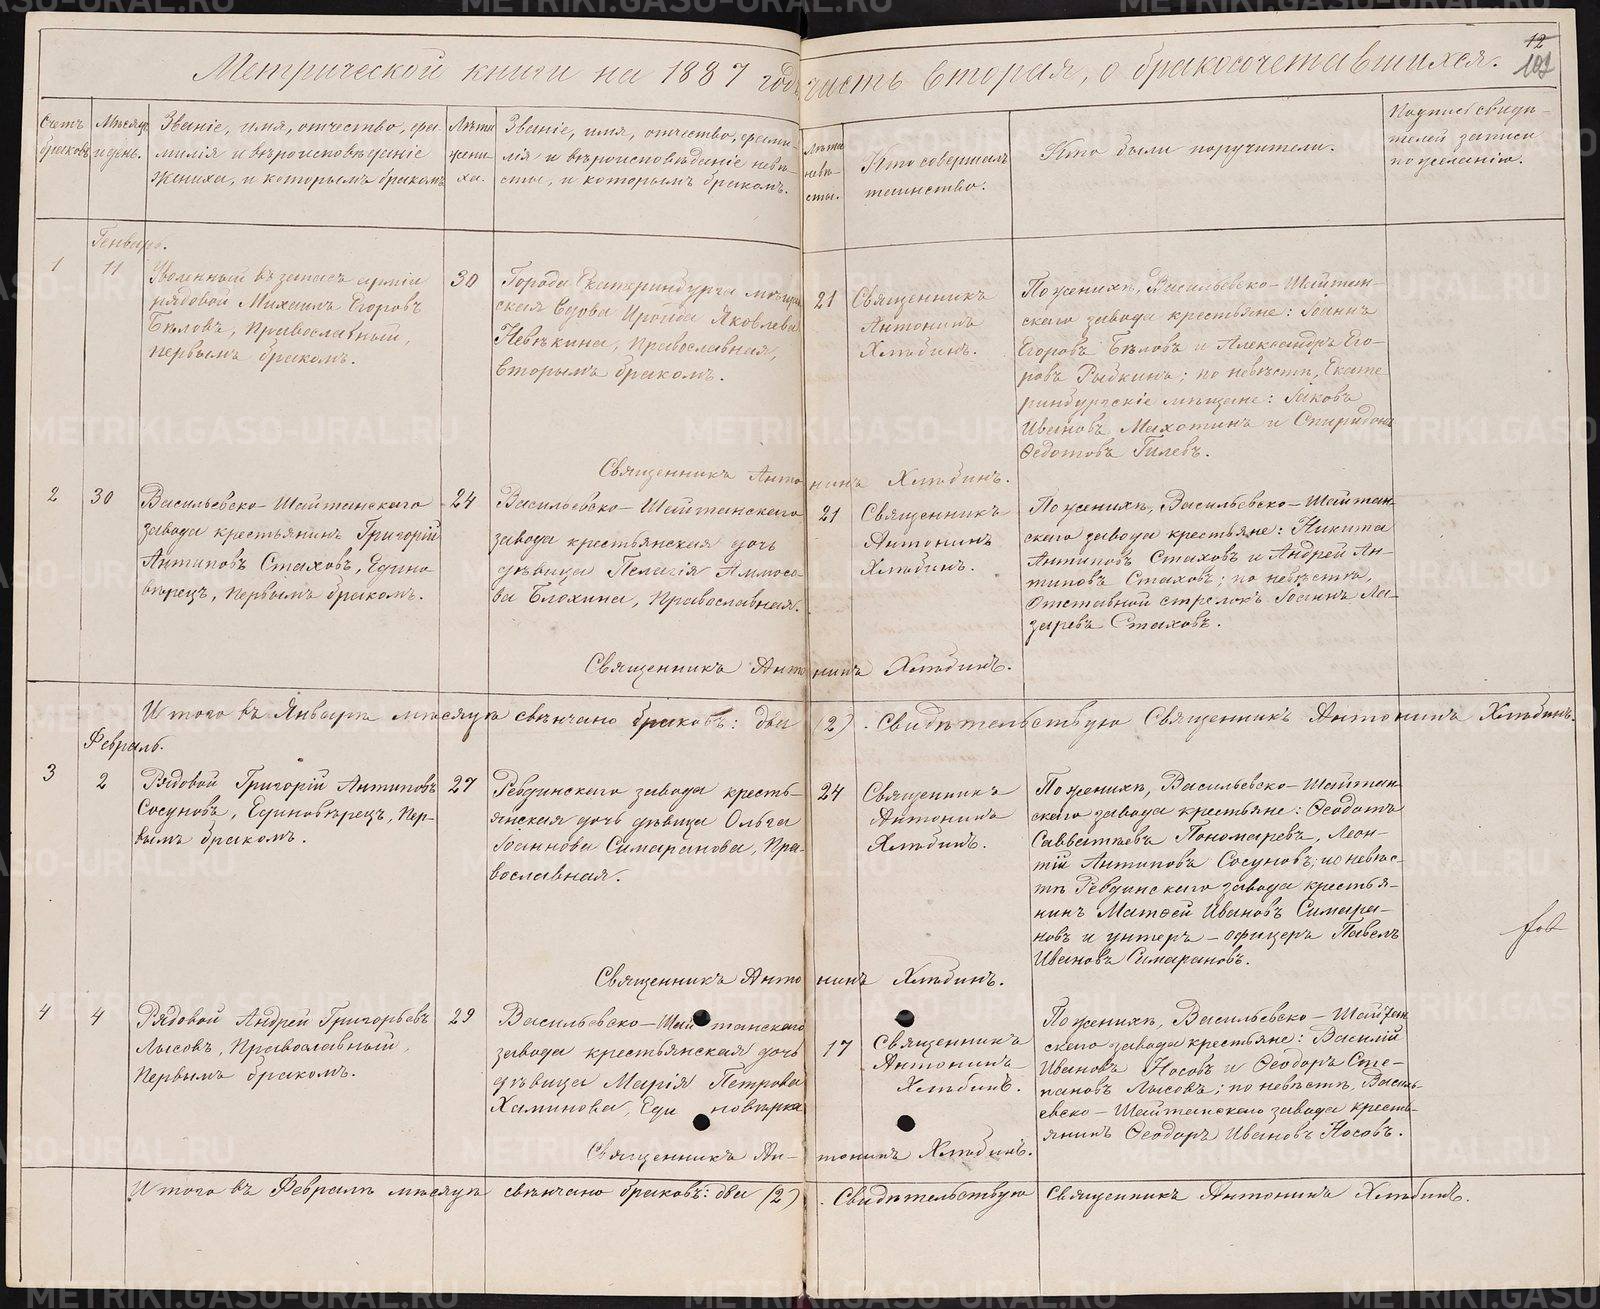 Метрической книги на 1887 годъ часть вторая, о бракосочетавшихся.
12
107
Счетъ браковъ.
Мѣсяцъ и день.
Званіе, имя, отчество, фа-
милія и вѣроисповѣданіе
жениха, и которымъ бракомъ
Лѣта
жени-
ха.
Званіе, имя, отчество, фами-
лія и вѣроисповѣданіе невѣ-
сты, и которымъ бракомъ.
Лѣта
невѣ-
сты.
Кто совершалъ
таинство.
Кто были поручители.
Подпись свидѣ-
телей записи
по желанію.
Генварь.
1
11
Уволенный въ запасъ арміи
рядовой Михаилъ Егоровъ
Бѣловъ, Православный,
первымъ бракомъ.
30
Города Екатеринбурга мѣщан
ская вдова Ираида Яковлева
Невѣкина, Православная,
вторымъ бракомъ.
21
Священникъ
Антонинъ
Хлѣбинъ.
По женихѣ, Васильевско-Шайтан-
скаго завода крестьяне: Іоаннъ
Егоровъ Бѣловъ и Александръ Его-
ровъ Рыбкинъ; по невѣстѣ, Екате
ринбургскіе мѣщане: Іаковъ
Ивановъ Махотинъ и Спиридонъ
Ѳедотовъ Гилевъ.
Священникъ Антонинъ Хлѣбинъ.
2
30
Васильевско-Шайтанскаго
завода крестьянинъ Григорій
Антиповъ Стаховъ, Едино
вѣрецъ, первымъ бракомъ.
24
Васильевско-Шайтанскаго
завода крестьянская дочь
дѣвица Пелагія Аммосо-
ва Блохина, Православная.
21
Священникъ
Антонинъ
Хлѣбинъ.
По женихѣ, Васильевско-Шайтан-
скаго завода крестьяне: Никита
Антиповъ Стаховъ и Андрей Ан-
типовъ Стаховъ; по невѣстѣ,
Отставной стрѣлокъ Іоаннъ Ла-
заревъ Стаховъ.
Священникъ Антонинъ Хлѣбинъ.
Итого въ Январѣ мѣсяцѣ свѣнчано браковъ: два (2). Свидѣтельствую Священникъ Антонинъ Хлѣбинъ.
Февраль.
3
2
Рядовой Григорій Антиповъ
Сосуновъ, Единовѣрецъ, пер-
вымъ бракомъ.
27
Ревдинскаго завода кресть-
янская дочь дѣвица Ольга
Іоаннова Симаранова, Пра-
вославная.
24
Священникъ
Антонинъ
Хлѣбинъ.
По женихѣ, Васильевско-Шайтан
скаго завода крестьяне: Ѳеодотъ
Савватѣевъ Пономаревъ, Леон-
тій Антиповъ Сосуновъ; по невѣс-
тѣ Ревдинскаго завода крестья-
нинъ Матѳей Ивановъ Симара-
новъ и унтеръ-офицеръ Павелъ
Ивановъ Симарановъ.
Священникъ Антонинъ Хлѣбинъ.
4
4
Рядовой Андрей Григорьевъ
Лысовъ, Православный,
первымъ бракомъ.
29
Васильевско-Шайтанскаго
завода крестьянская дочь
дѣвица Марія Петрова
Халинова, Единовѣрка
17
Священникъ
Антонинъ
Хлѣбинъ.
По женихѣ, Васильевско-Шайтан
скаго завода крестьяне: Василій
Ивановъ Носовъ и Ѳеодоръ Сте-
пановъ Лысовъ; по невѣстѣ, Василь-
евско-Шайтанскаго завода кресть-
янинъ Ѳеодоръ Ивановъ Носовъ.
Священникъ Антонинъ Хлѣбинъ.
Итого въ Февралѣ мѣсяцѣ свѣнчано браковъ: два (2). Свидѣтельствую Священникъ Антонинъ Хлѣбинъ.
METRIKI.GASO-URAL.RU